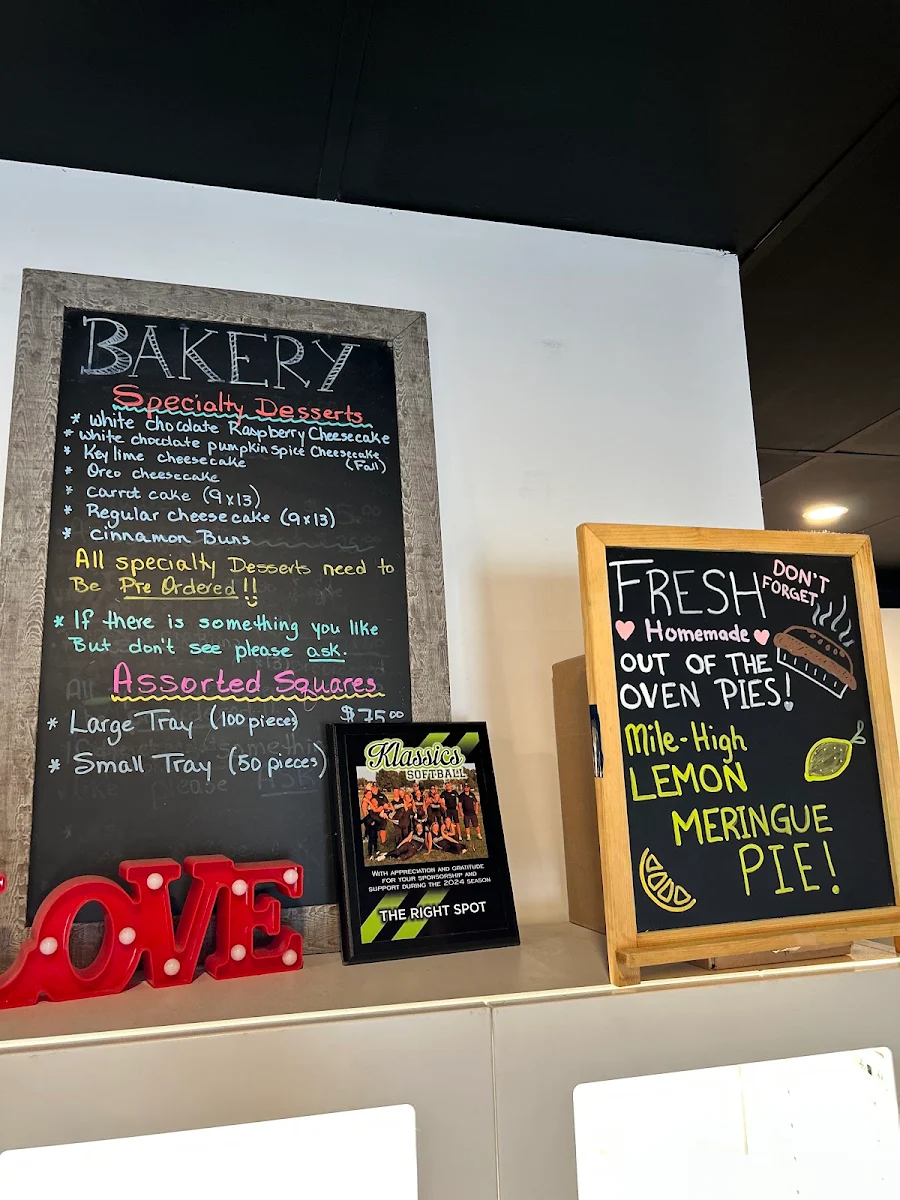 BAKERY
Specialty Desserts
* white chocolate Raspberry Cheesecake
* white chocolate pumpkin spice Cheesecake
(Fall)
* Key lime cheesecake
* Oreo cheesecake
* carrot cake (9x13)
* Regular cheesecake (9x13)
* cinnamon Buns
All specialty Desserts need to
Be Pre Ordered!!
* If there is something you like
But don't see please ask.
Assorted Squares
* Large Tray (100 pieces) $75.00
* Small Tray (50 pieces)
OVE
Klassics
SOFTBALL
WITH APPRECIATION AND GRATITUDE
FOR YOUR SPONSORSHIP AND
SUPPORT DURING THE 2024 SEASON
THE RIGHT SPOT
DON'T
FORGET
FRESH
Homemade
OUT OF THE
OVEN PIES!
Mile-High
LEMON
MERINGUE
PIE!